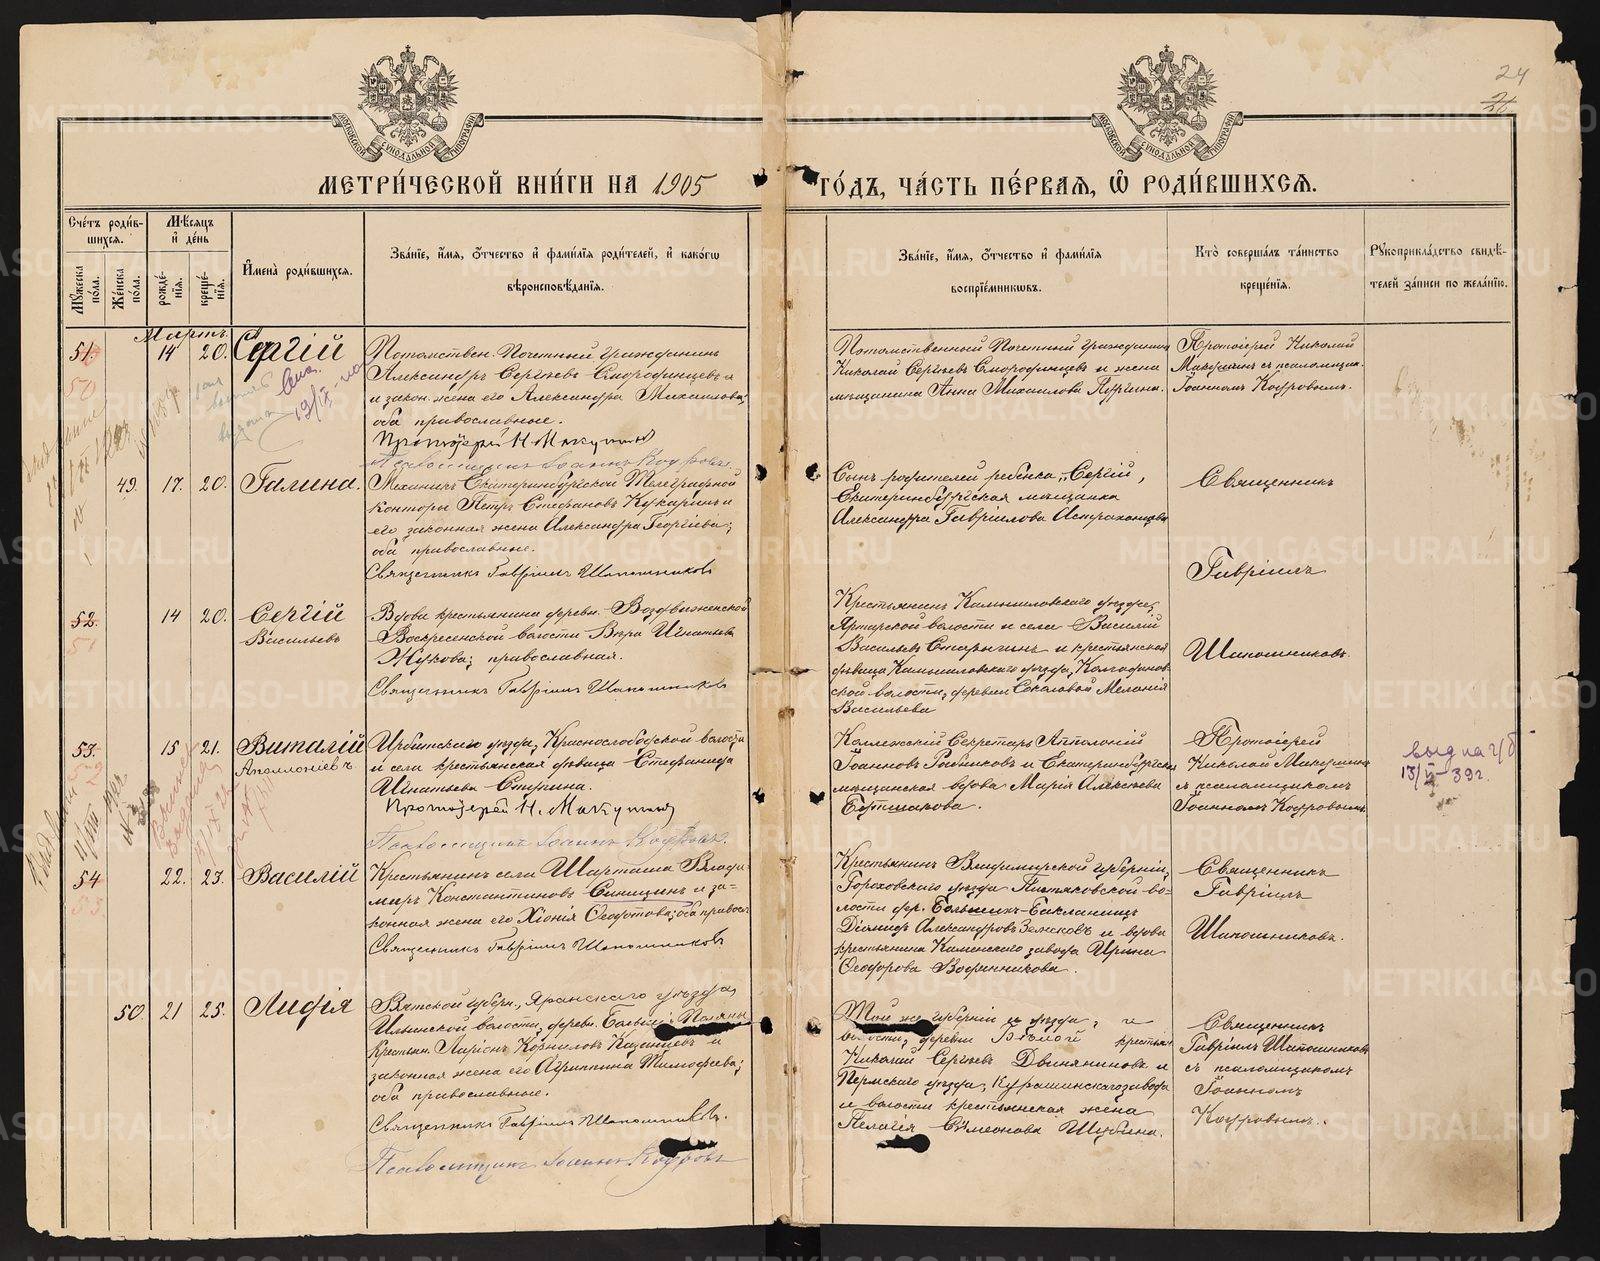 24
МЕТРИ́ЧЕСКОЙ КНИ́ГИ НА 1905
ГО́ДЪ, ЧА́СТЬ ПЕ́РВАѦ, Ѡ҆ РОДИ́ВШИХСѦ.
Сче́тъ роди́в-
шихся.
Мѣсяцъ
и҆ де́нь
Мꙋжеска по́ла.
Же́нска по́ла.
рожде́-
нїѧ.
креще́-
нїѧ.
И҆мена̀ роди́вшихся.
Зва́нїе, и҆́мя, ѻ҆́тчество и҆ фами́лїя роди́телей, и҆ како́гѡ
вѣроисповѣ́данїѧ.
Зва́нїе, и҆́мя, ѻ҆́тчество и҆ фами́лїя
воспрїе́мникѡвъ.
Кто̀ соверша́лъ та́инство
креще́нїѧ.
Рꙋкоприкла́дство свидѣ́-
телей за́писи по жела́нїю.
Мартъ.
51
50
14
20.
Сергій
Потомствен. Почетный Гражданинъ
Александръ Сергѣевъ Смородинцевъ и
и закон. жена его Александра Михаилова;
оба православные.
Протоіерей Н. Макушинъ
Псаломщикъ Іоаннъ Кофровъ.
Потомственный Почетный Гражданинъ
Николай Сергѣевъ Смородинцевъ и жена
мѣщанина Анна Михаилова
Протоіерей Николай
Макушинъ съ псаломщик.
Іоанномъ Кофровымъ.
49.
17.
20.
Галина.
Механикъ Екатеринбургской Телеграфной
конторы Петръ Стефановъ Кукаринъ и
его законная жена Александра Георгіева;
оба православные.
Священникъ Гавріилъ Шапошниковъ
Сынъ родителей ребенка „Сергій,
Екатеринбургская мѣщанка
Александра Гавріилова Астраханцева
Священникъ
Гавріилъ
Шапошниковъ.
52.
51
14
20.
Сергій
Васильевъ
Вдова крестьянина деревн. Воздвиженской
Воскресенской волости Вѣра Игнатьева
Жукова; православная.
Священникъ Гавріилъ Шапошниковъ
Крестьянинъ Камышловскаго уѣзда,
волости и села Василій
Васильевъ и крестьянская
дѣвица Камышловскаго уѣзда,
ской волости, деревни Соколовой Меланія
Васильева
53.
52
15
21.
Виталій
Аполлоніевъ
Ирбитскаго уѣзда, Краснослободской волости
и села крестьянская дѣвица Стефанида
Игнатьева
Протоіерей Н. Макушинъ
Псаломщикъ Іоаннъ Кофровъ.
Коллежскій Секретарь Апполоній
Іоанновъ и Екатеринбургская
мѣщанская вдова Марія Алексѣева
Протоіерей
Николай Макушинъ
съ псаломщикомъ
Іоанномъ Кофровымъ.
13/II-39г.
54
53
22.
23.
Василій
Крестьянинъ села Шарташа Влади-
миръ Константиновъ Синицинъ и за-
конная жена его Хіонія Ѳеодотова; оба правосл.
Священникъ Гавріилъ Шапошниковъ
Крестьянинъ Владимірской губерніи,
Гороховскаго уѣзда волости дер.
Діомидъ Александровъ и вдова
крестьянина Каменскаго завода Ирина
Ѳеодорова
Священникъ
Гавріилъ
Шапошниковъ.
50.
21
25.
Лидія
Вятской губерн., Яранскаго уѣзда,
Ильинской волости, деревн. Больш. Поляны
крестьян. Ларіонъ Корниловъ Казанцевъ и
законная жена его Агриппина Тимофеева;
оба православные.
Священникъ Гавріилъ Шапошниковъ.
Псаломщикъ Іоаннъ Кофровъ
Той же губерніи и уѣзда, и
волости, деревни крестьян.
Николай Сергѣевъ Двиняниновъ и
Пермскаго уѣзда, Курашимскаго завода
и волости крестьянская жена
Пелагія Симеонова Шубина.
Священникъ
Гавріилъ Шапошниковъ
съ псаломщикомъ
Іоанномъ
Кофровымъ.
METRIKI.GASO-URAL.RU